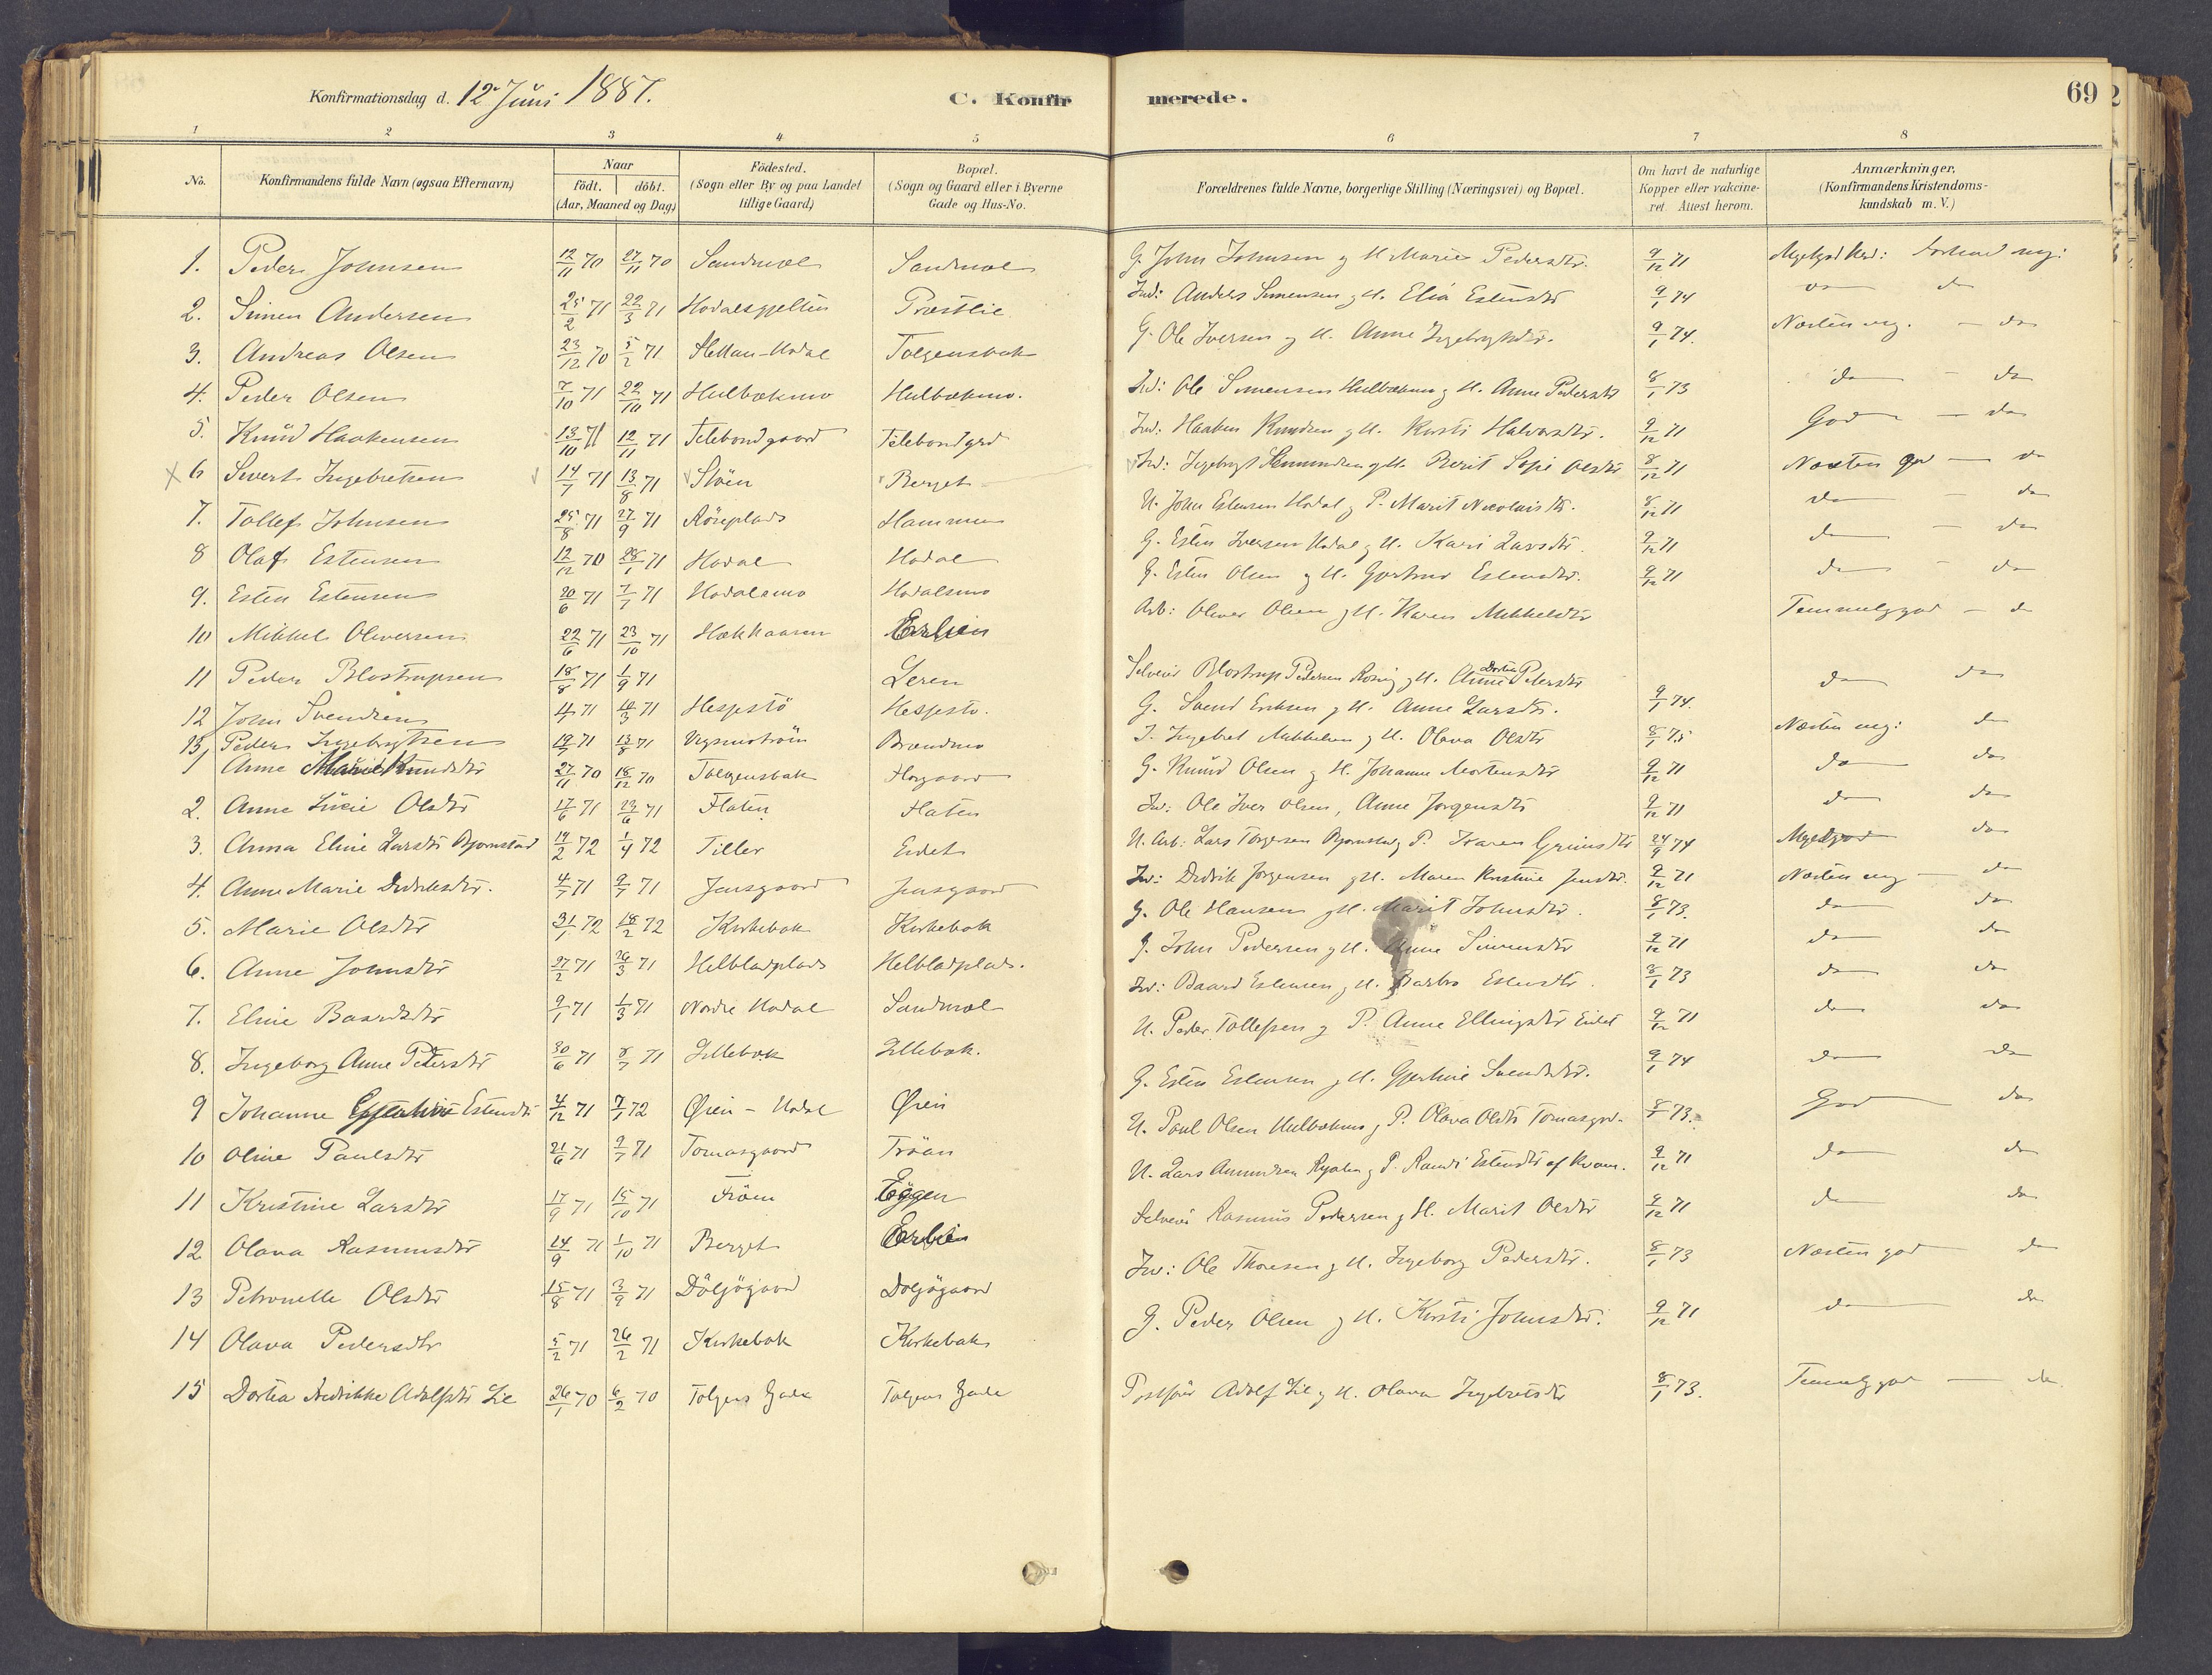 Konfirmationsdag d. 12. Juni 1887.
C. Konfirmerede.
69
1 2 3 4 5 6 7 8
No. Konfirmandens fulde Navn (ogsaa Efternavn) Naar födt. döbt. (Aar, Maaned og Dag) Födested. (Sogn eller By og paa Landet tillige Gaard) Bopæl. (Sogn og Gaard eller i Byerne Gade og Hus-No. Forældrenes fulde Navne, borgerlige Stilling (Næringsvei) og Bopæl. Om havt de naturlige Kopper eller vakcineret. Attest herom. Anmærkninger. (Konfirmandens Kristendomskundskab m. V.)
1. Peder Johnsen 12/11 70 27/11 70 Sandmoel Sandmoel G. John Johnsen og H. Marie Pedersdtr. 9/12 71
2. Simen Andersen 25/2 71 22/3 71 Præstlie Ind: Anders Simensen og H. Elia Estensdtr 9/1 74 do
3. Andreas Olsen 23/12 70 5/2 71 Tolgensbak G. Ole Iversen og H. Anne Ingebrigtsdtr. 9/1 74. Næsten mg. — do
4. Peder Olsen 7/10 71 22/10 71 Hulbækmo Hulbækmo. Ind: Ole Simensen Hulbækmo og H. Anne Pedersdtr 8/1 73 do — do
5. Knud Haakensen 13/10 71 12/11 71 Telebondgaard Telebondgrd Ind: Haaken Knudsen og H. Kirsti Halvorsdtr. 9/12 71 God — do
x 6 Sivert Ingebretsen 14/7 71 13/8 71 Støen Berget Ind: Ingebrigt Amundsen og H. Berit Sofie Olsdtr 8/12 71 Næsten god — do
7. Tollef Johnsen 25/8 71 27/9 71 Röseplads Hammeren U. John Estensen Hodal og P. Marit Nicolaisdtr. 8/12 71 do — do
8 Olaf Estensen 12/12 70 28/1 71 Hodal Hodal G. Esten Iversen Hodal og H. Kari Larsdtr. 9/12 71 do — do
9. Esten Estensen 20/6 71 7/7 71 Hodalsmo Hodalsmo G. Esten Olsen og H. Gjertrud Estensdtr. 9/12 71 do — do
10 Mikkel Oliversen 22/6 71 23/10 71 Erlien Arb: Oliver Olsen og H. Karen Mikkelsdtr Temmelig god — do
11 Peder Blostrupsen 18/8 71 1/9 71 Leren Selveier Blostrup Pedersen og H. Anne Dortea Petersdtr do do
12 John Svendsen 71 71 Hessjestö Hessjestö. G. Svend Eriksen og H. Anne Larsdtr. 9/1 74. Næsten mg: do
13, Peder Ingebrigtsen 19/7 71 13/8 71 Brændmo I. Ingebret Mikkelsen og H. Olava Olsdtr 8/1 75 do do
1 Anne Marie Knudsdtr 27/11 70 18/12 70 Tolgensbak G. Knud Olsen og H. Johanne Mortensdtr 9/12 71 do do
2. Anne Lucie Olsdtr 17/6 71 23/6 71 Flaten Flaten Ind: Ole Iver Olsen, Anne Jorgensdtr 9/12 71
3. Anna Eline Larsdtr Bjørnstad 19/2 72 1/4 72 Tiller Eidet U. Arb: Lars Torgersen Bjørnstad og P. Karen Grimsdtr 24/9 74 Meget god do
4. Anne Marie Didriksdtr. 4/7 71 9/7 71 Jensgaard Jensgaard Ind: Didrik Jørgensen og H. Maren Kristine Jensdtr. 9/12 71 Næsten mg — do
5. Marie Olsdtr 31/1 72 18/2 72 Kirkebak Kirkebak G. Ole Hansen og H. Marit Johnsdtr. 8/1 73. do do
6. Anne Johnsdtr 27/2 71 26/3 71 Helbladplads Helbladplads. G. John Pedersen og H. Anne Simensdtr 9/12 71 do do
7. Eline Baardsdtr 9/1 71 1/3 71 Nordre Hodal Sandmoel Ind: Baard Estensen og H. Barbro Estensdtr. 8/1 73 do do
8. Ingeborg Anne Petersdtr 30/6 71 8/7 71 Lillebæk Lillebæk. U. Peder Tollefsen og P. Anne Ellingsdtr Eidet 9/12 71 do do
9 Johanne Estensdtr 4/12 71 7/1 72 Øien - Hodal Øien G. Esten Estensen og H. Gjertine Svendsdtr. 9/1 74 do do
10 Oline Paulsdtr 21/6 71 9/7 71 Tomasgaard Trøan U. Paul Olsen Hulbækmo og P. Olava Olsdtr Tomasgrd. 8/1 73. God do
11 Kristine Larsdtr 17/9 71 15/10 71 Eggen U. Lars Amundsen og P. Randi Estensdtr af Kvam. 9/12 71 do do
12 Olava Rasmusdtr 14/9 71 1/10 71 Berget Erlien Selveier Rasmus Pedersen og H. Marit Olsdtr 9/12 71 do do
13 Petronelle Olsdtr 15/8 71 3/9 71 Döljögaard Doljögaard Ind: Ole Thoresen og H. Ingeborg Pedersdtr. 8/1 73 Næsten god do
14 Olava Pedersdtr 5/2 71 26/2 71 Kirkebak Kirkebak G. Peder Olsen og H. Kirsti Johnsdtr. 9/12 71 do do
15 Dortea Fredrikke Adolfsdtr Lie 26/1 70 6/2 70 Tolgens Gade Tolgens Gade Adolf Lie og H. Olava Ingebretsdtr 8/1 73. Temmelig god — do